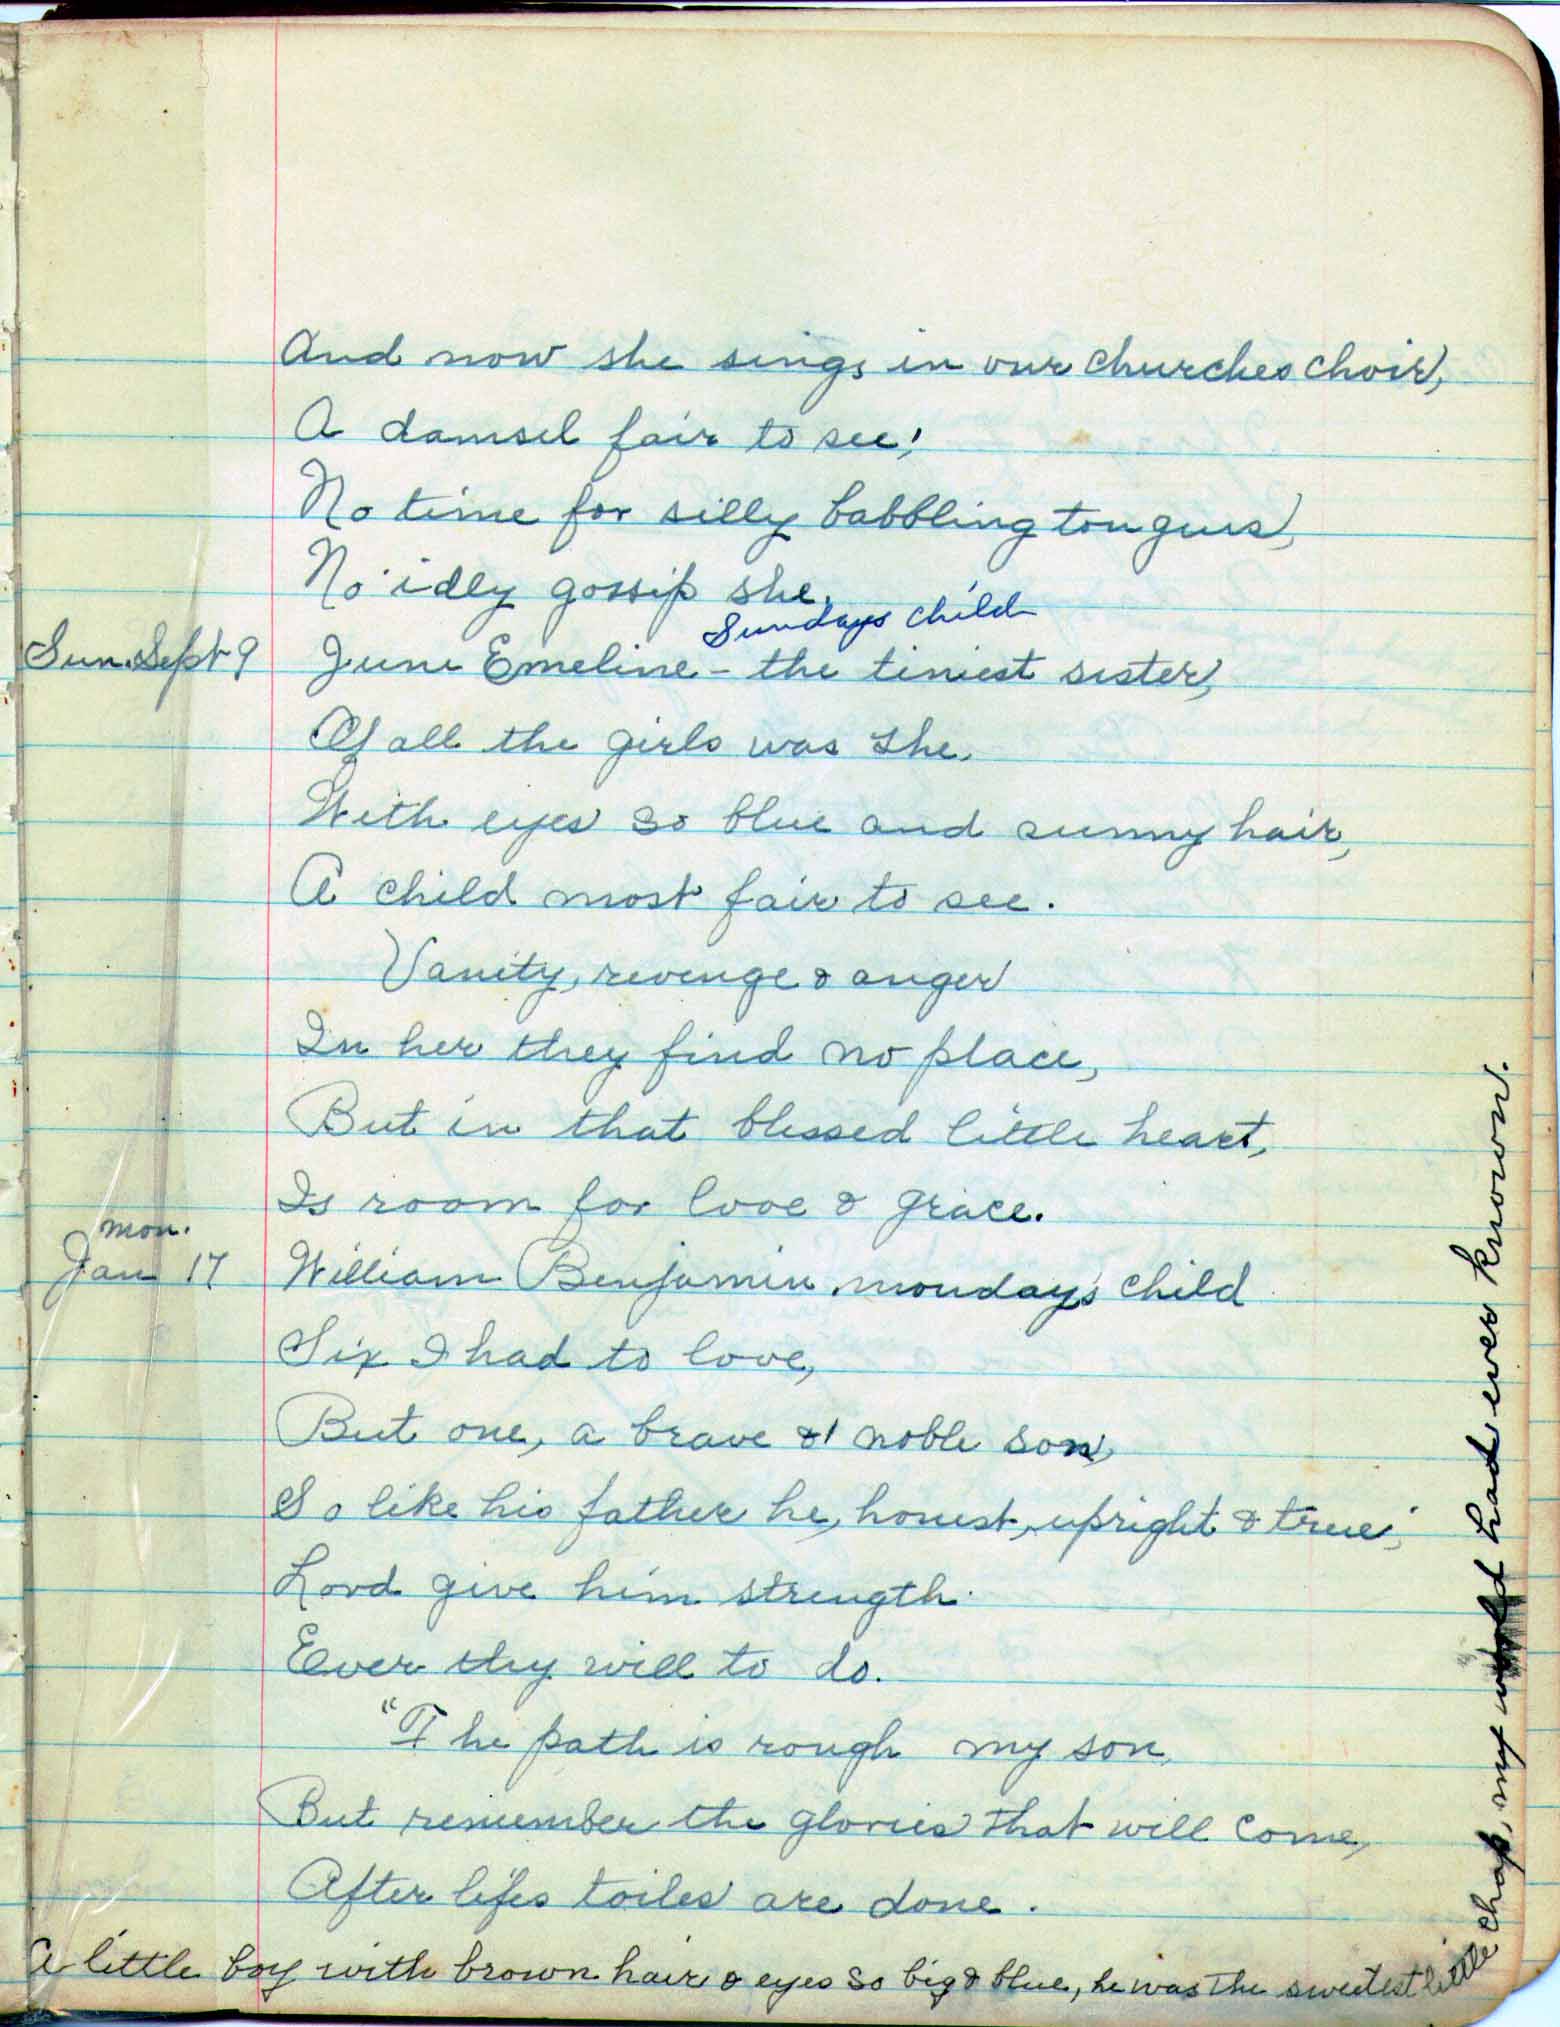 And now she sings in our churches choir,
A damsel fair to see;
No time for silly babbling tongues,
No idly gossip she.
Sundays child
Sun. Sept 9 June Emeline - the tiniest sister,
Of all the girls was she.
With eyes so blue and sunny hair,
A child most fair to see.
Vanity, revenge & anger
In her they find no place,
But in that blessed little heart,
Is room for love & grace.
Mon.
Jan 17 William Benjamin, monday's child
Six I had to love,
But one, a brave & noble son,
So like his father he, honest, upright & true;
Lord give him strength
Ever thy will to do.
"The path is rough my son,
But remember the glories that will come,
After lifes toiles are done.
A little boy with brown hair & eyes so big & blue, he was the sweetest little chap, my world had ever known.